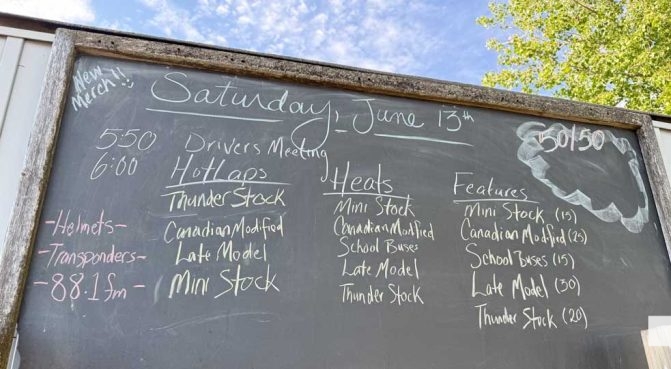 New
Merch!!
Saturday, June 13th
50/50
550 Drivers Meeting
6:00 HotLaps
Thunder Stock
Canadian Modified
Late Model
Mini Stock
Heats
Mini Stock
Canadian Modified
School Buses
Late Model
Thunder Stock
Features
Mini Stock (15)
Canadian Modified (25)
School Buses (15)
Late Model (30)
Thunder Stock (20)
-Helmets-
-Transponders-
-88.1 fm-